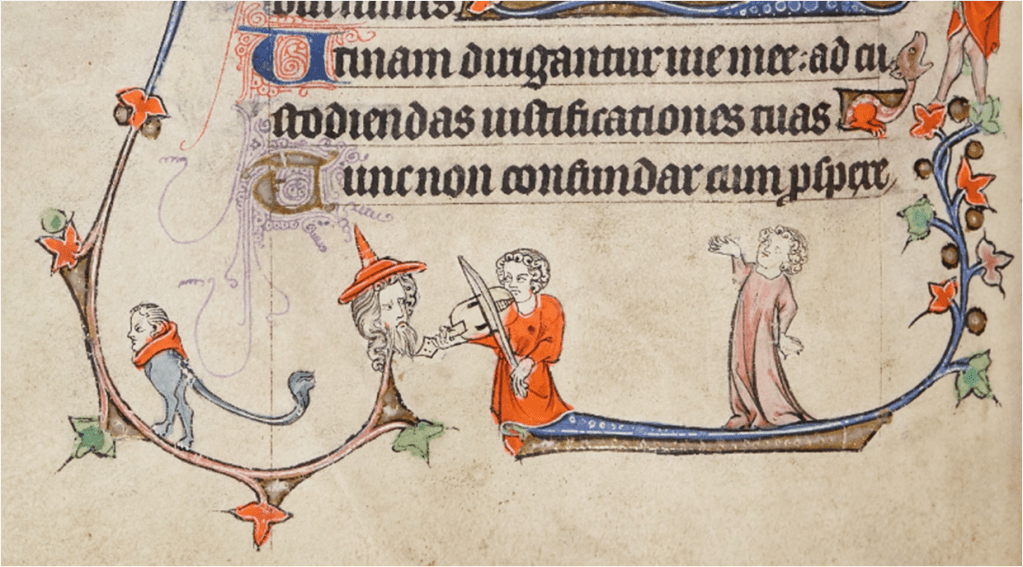 nimis.
Utinam dirigantur uie mee: ad cu
stodiendas iustificationes tuas
Tunc non confundar cum pspexe